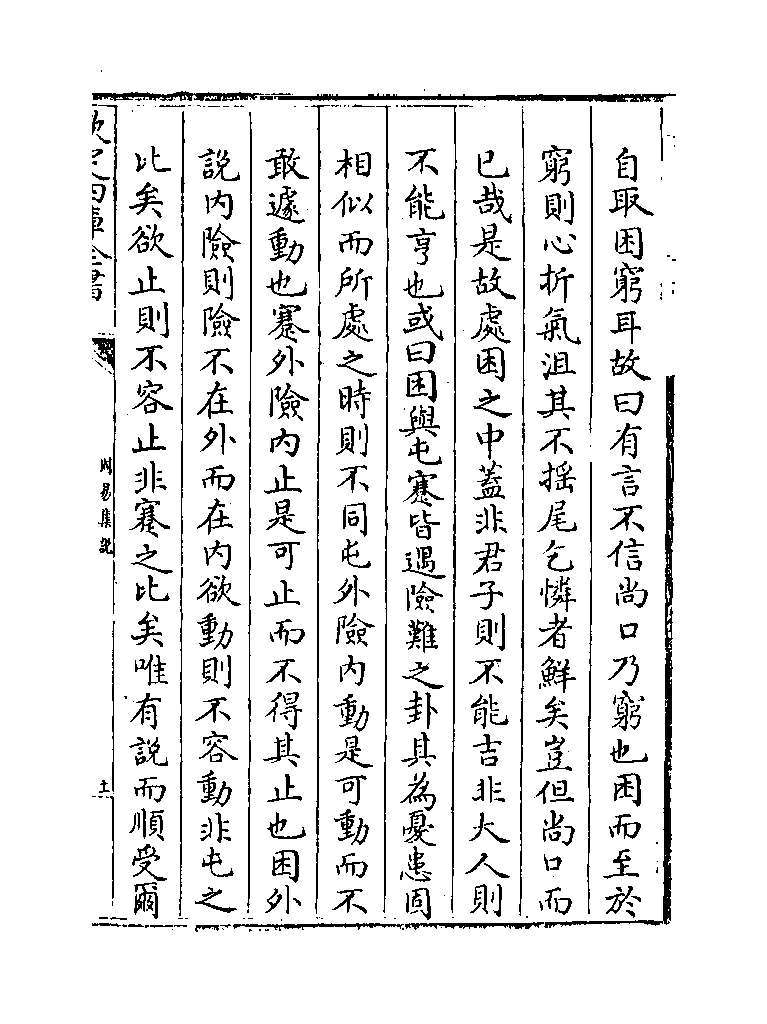 自取困窮耳故曰有言不信尚口乃窮也困而至於
窮則心折氣沮其不揺尾乞憐者鮮矣豈但尚口而
已哉是故處困之中蓋非君子則不能吉非大人則
不能亨也或曰困與屯蹇皆遇險難之卦其為憂患固
相似而所處之時則不同屯外險内動是可動而不
敢遽動也蹇外險内止是可止而不得其止也困外
説内險則險不在外而在内欲動則不容動非屯之
比矣欲止則不容止非蹇之比矣唯有説而順受爾
欽定四庫全書
周易集說
十二